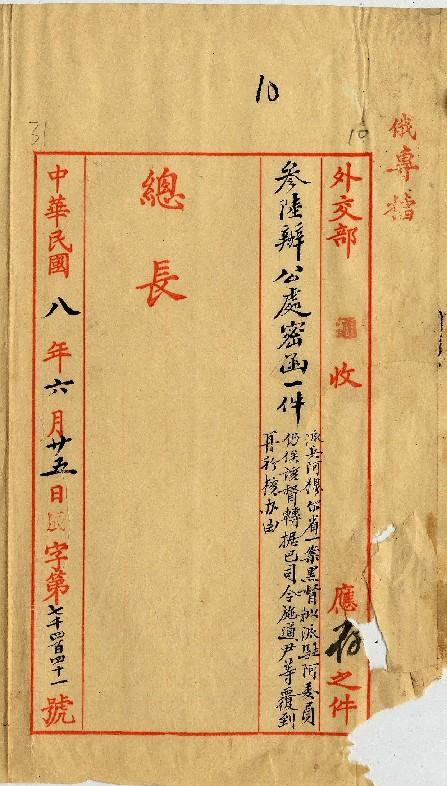 10
31
10
俄專檔
外交部 收 應存之件
參陸辦公處密函一件
派兵阿穆尔省一案黑督拟派駐阿委員
仍俟該督轉据巴司令施道尹等覆到
再行核办由
總長
中華民國八年六月廿五日 字第七千四百四十一號